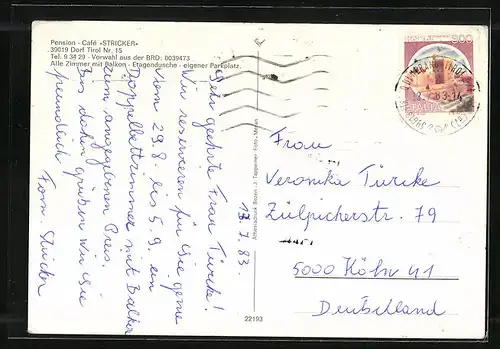 Pension - Café «STRICKER»
39019 Dorf Tirol Nr. 15
Tel. 9 34 29 - Vorwahl aus der BRD: 0039473
Alle Zimmer mit Balkon - Etagendusche - eigener Parkplatz.
13.7.83.
Sehr geehrte Frau Türcke!
Wir reservieren für Sie gerne
vom 29.8. bis 5.9. ein
Doppelbettzimmer mit Balkon
zum angegebenen Preis.
Bis dahin grüßen wir Sie
freundlich
Fam. Stricker
Athesiadruck Bozen
Foto - Meran
22193
Frau
Veronika Türcke
Zülpicherstr. 79
5000 Köln 41
Deutschland
ITALIA